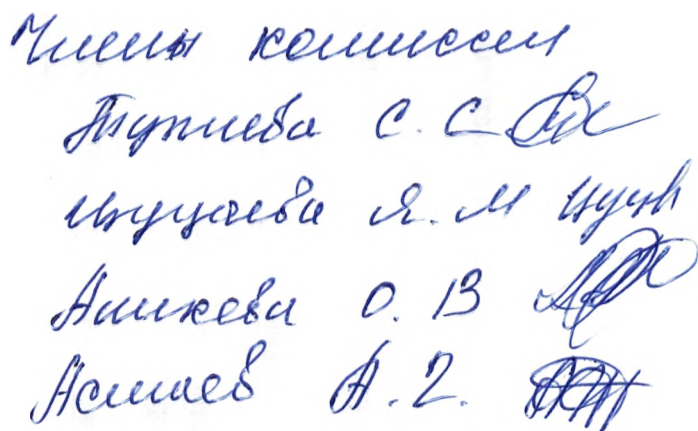 Члены комиссии
Тупиева С. С
Цуцаева Я. М Цуцв
Аликева О. В
Астаев А. Г.